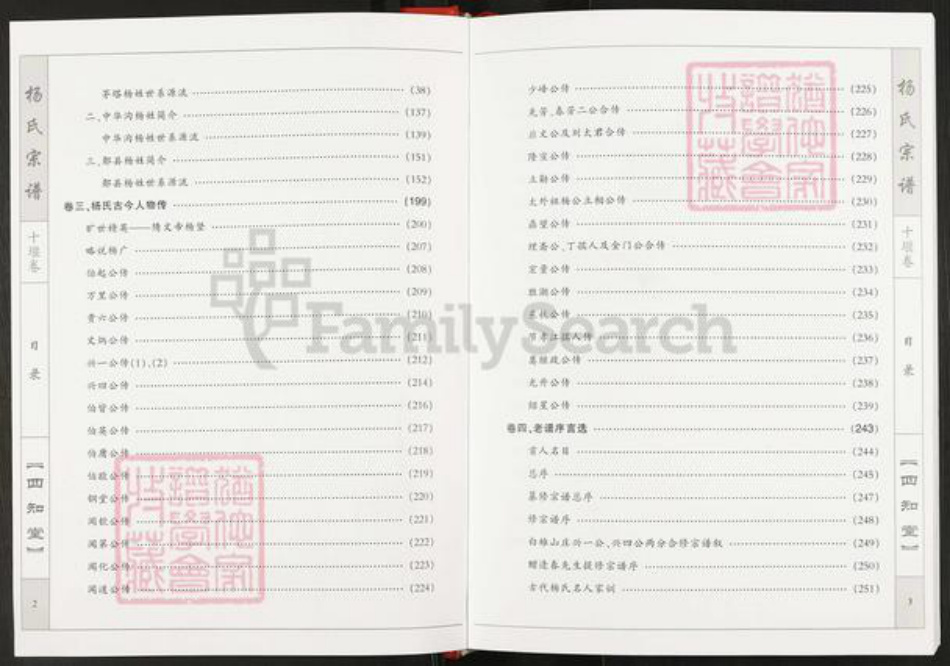 杨氏宗谱
十堰卷
目录
【四知堂】
2
茅塔杨姓世系源流 (38)
二、中华沟杨姓简介 (137)
中华沟杨姓世系源流 (139)
三、郧县杨姓简介 (151)
郧县杨姓世系源流 (152)
卷三、杨氏古今人物传 (199)
旷世精英——隋文帝杨坚 (200)
略说杨广 (207)
伯起公传 (208)
万里公传 (209)
贵六公传 (210)
文炳公传 (211)
兴一公传(1)、(2) (212)
兴四公传 (214)
伯皆公传 (216)
伯英公传 (217)
伯唐公传 (218)
伯敬公传 (219)
钢堂公传 (220)
闻钦公传 (221)
闻第公传 (222)
闻化公传 (223)
闻道公传 (224)
少峰公传 (225)
光芳、春芳二公合传 (226)
公及刘太君合传 (227)
隆宣公传 (228)
公传 (229)
太外祖杨公立桐公传 (230)
鼎望公传 (231)
理斋公、丁孺人及金门公合传 (232)
宏量公传 (233)
胜潮公传 (234)
公传 (235)
节孝江孺人传 (236)
继政公传 (237)
光升公传 (238)
绍星公传 (239)
卷四、老谱序言选 (243)
首人名目 (244)
总序 (245)
纂修宗谱总序 (247)
修宗谱序 (248)
白雄山庄兴一公、兴四公两分合修宗谱叙 (249)
赠逢春先生提修宗谱序 (250)
古代杨氏名人家训 (251)
杨氏宗谱
十堰卷
目录
【四知堂】
3
FamilySearch